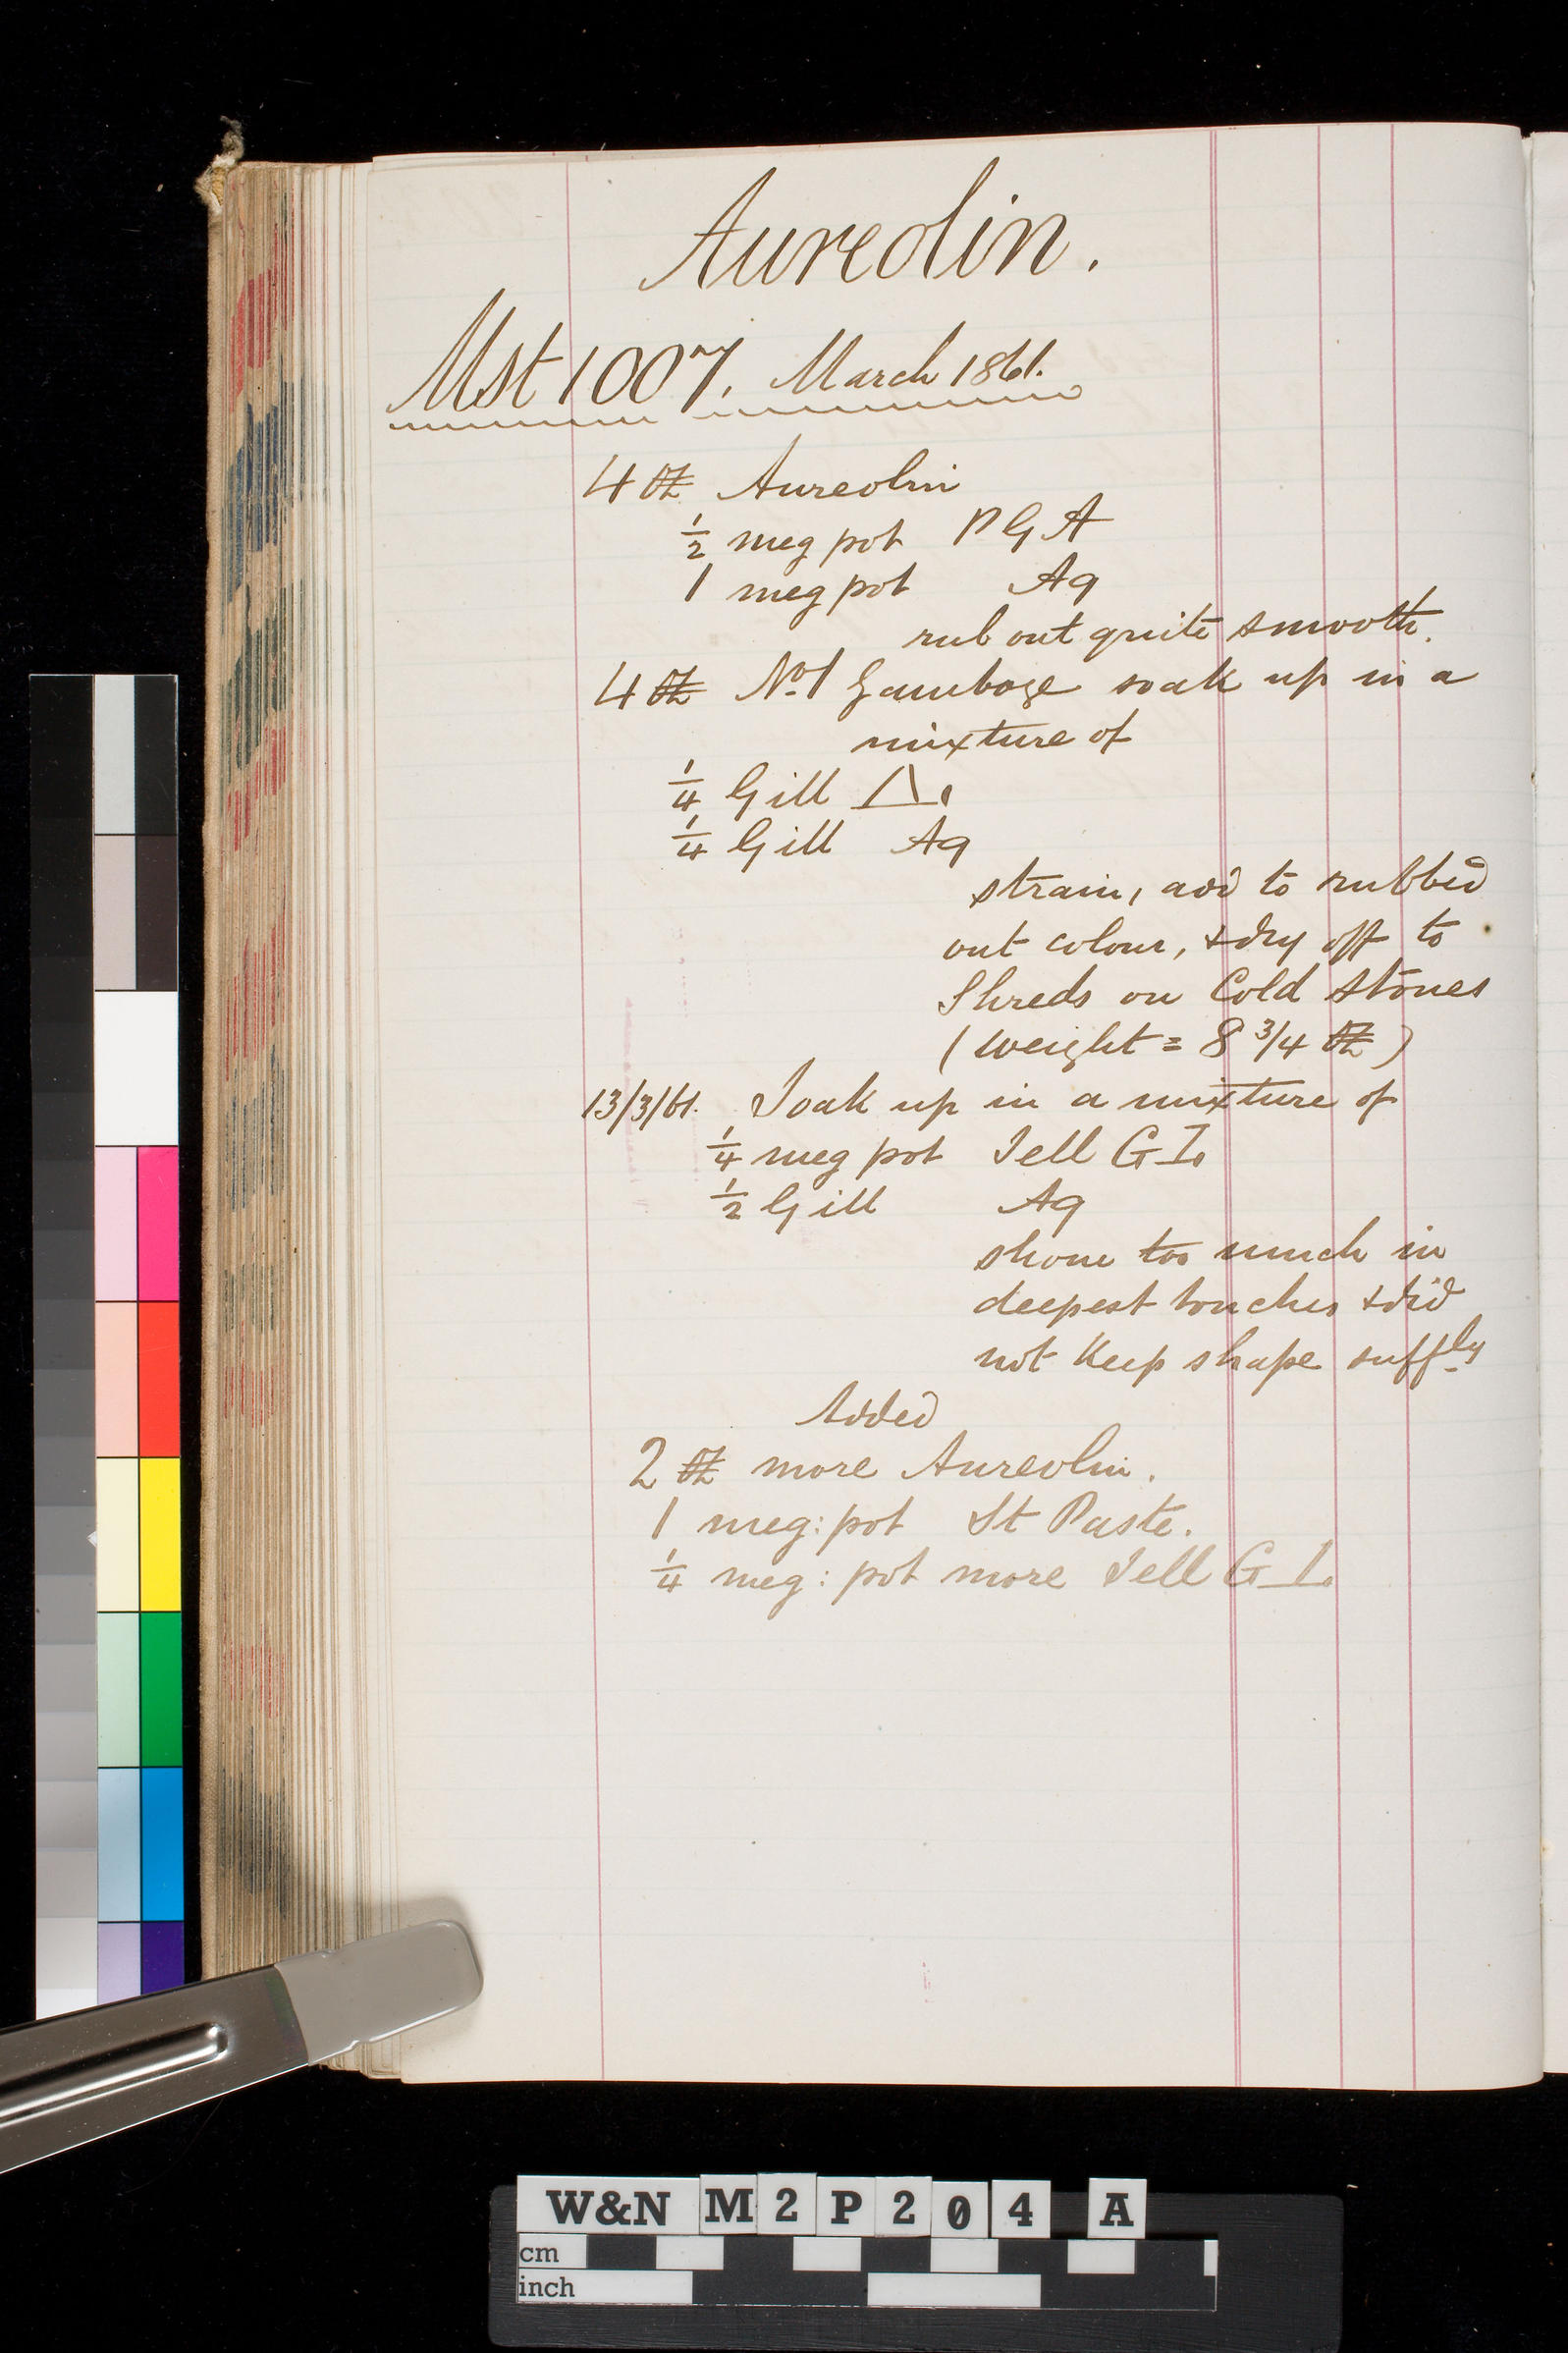 Aureolin.
Mst 1007. March 1861.
4 oz Aureolin
1/2 meg pot P G A
1 meg pot Aq
rub out quite smooth.
4 oz No. 1 Gamboge soak up in a
mixture of
1/4 Gill △.
1/4 Gill Aq
strain, add to rubbed
out colour, & dry off to
Shreds on Cold Stones
(weight = 8 3/4 oz)
13/3/61. Soak up in a mixture of
1/4 meg pot Jell G I.
1/2 Gill Aq
shone too much in
deepest touches & did
not Keep shape suffly
Added
2 oz more Aureolin.
1 meg: pot St Paste.
1/4 meg: pot more Jell G I.
W&N M2P204 A
cm
inch